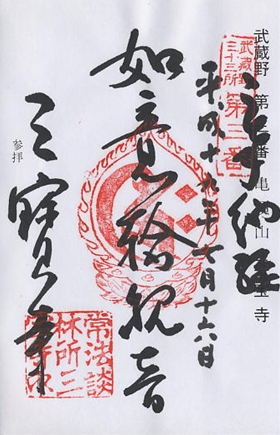 武蔵野 第三番 亀頂山 三宝寺
武蔵野
三十三所
第三番
納経
平成十九年七月十六日
如意輪観音
三寶寺
参拝
常法談
林所三
寶寺印